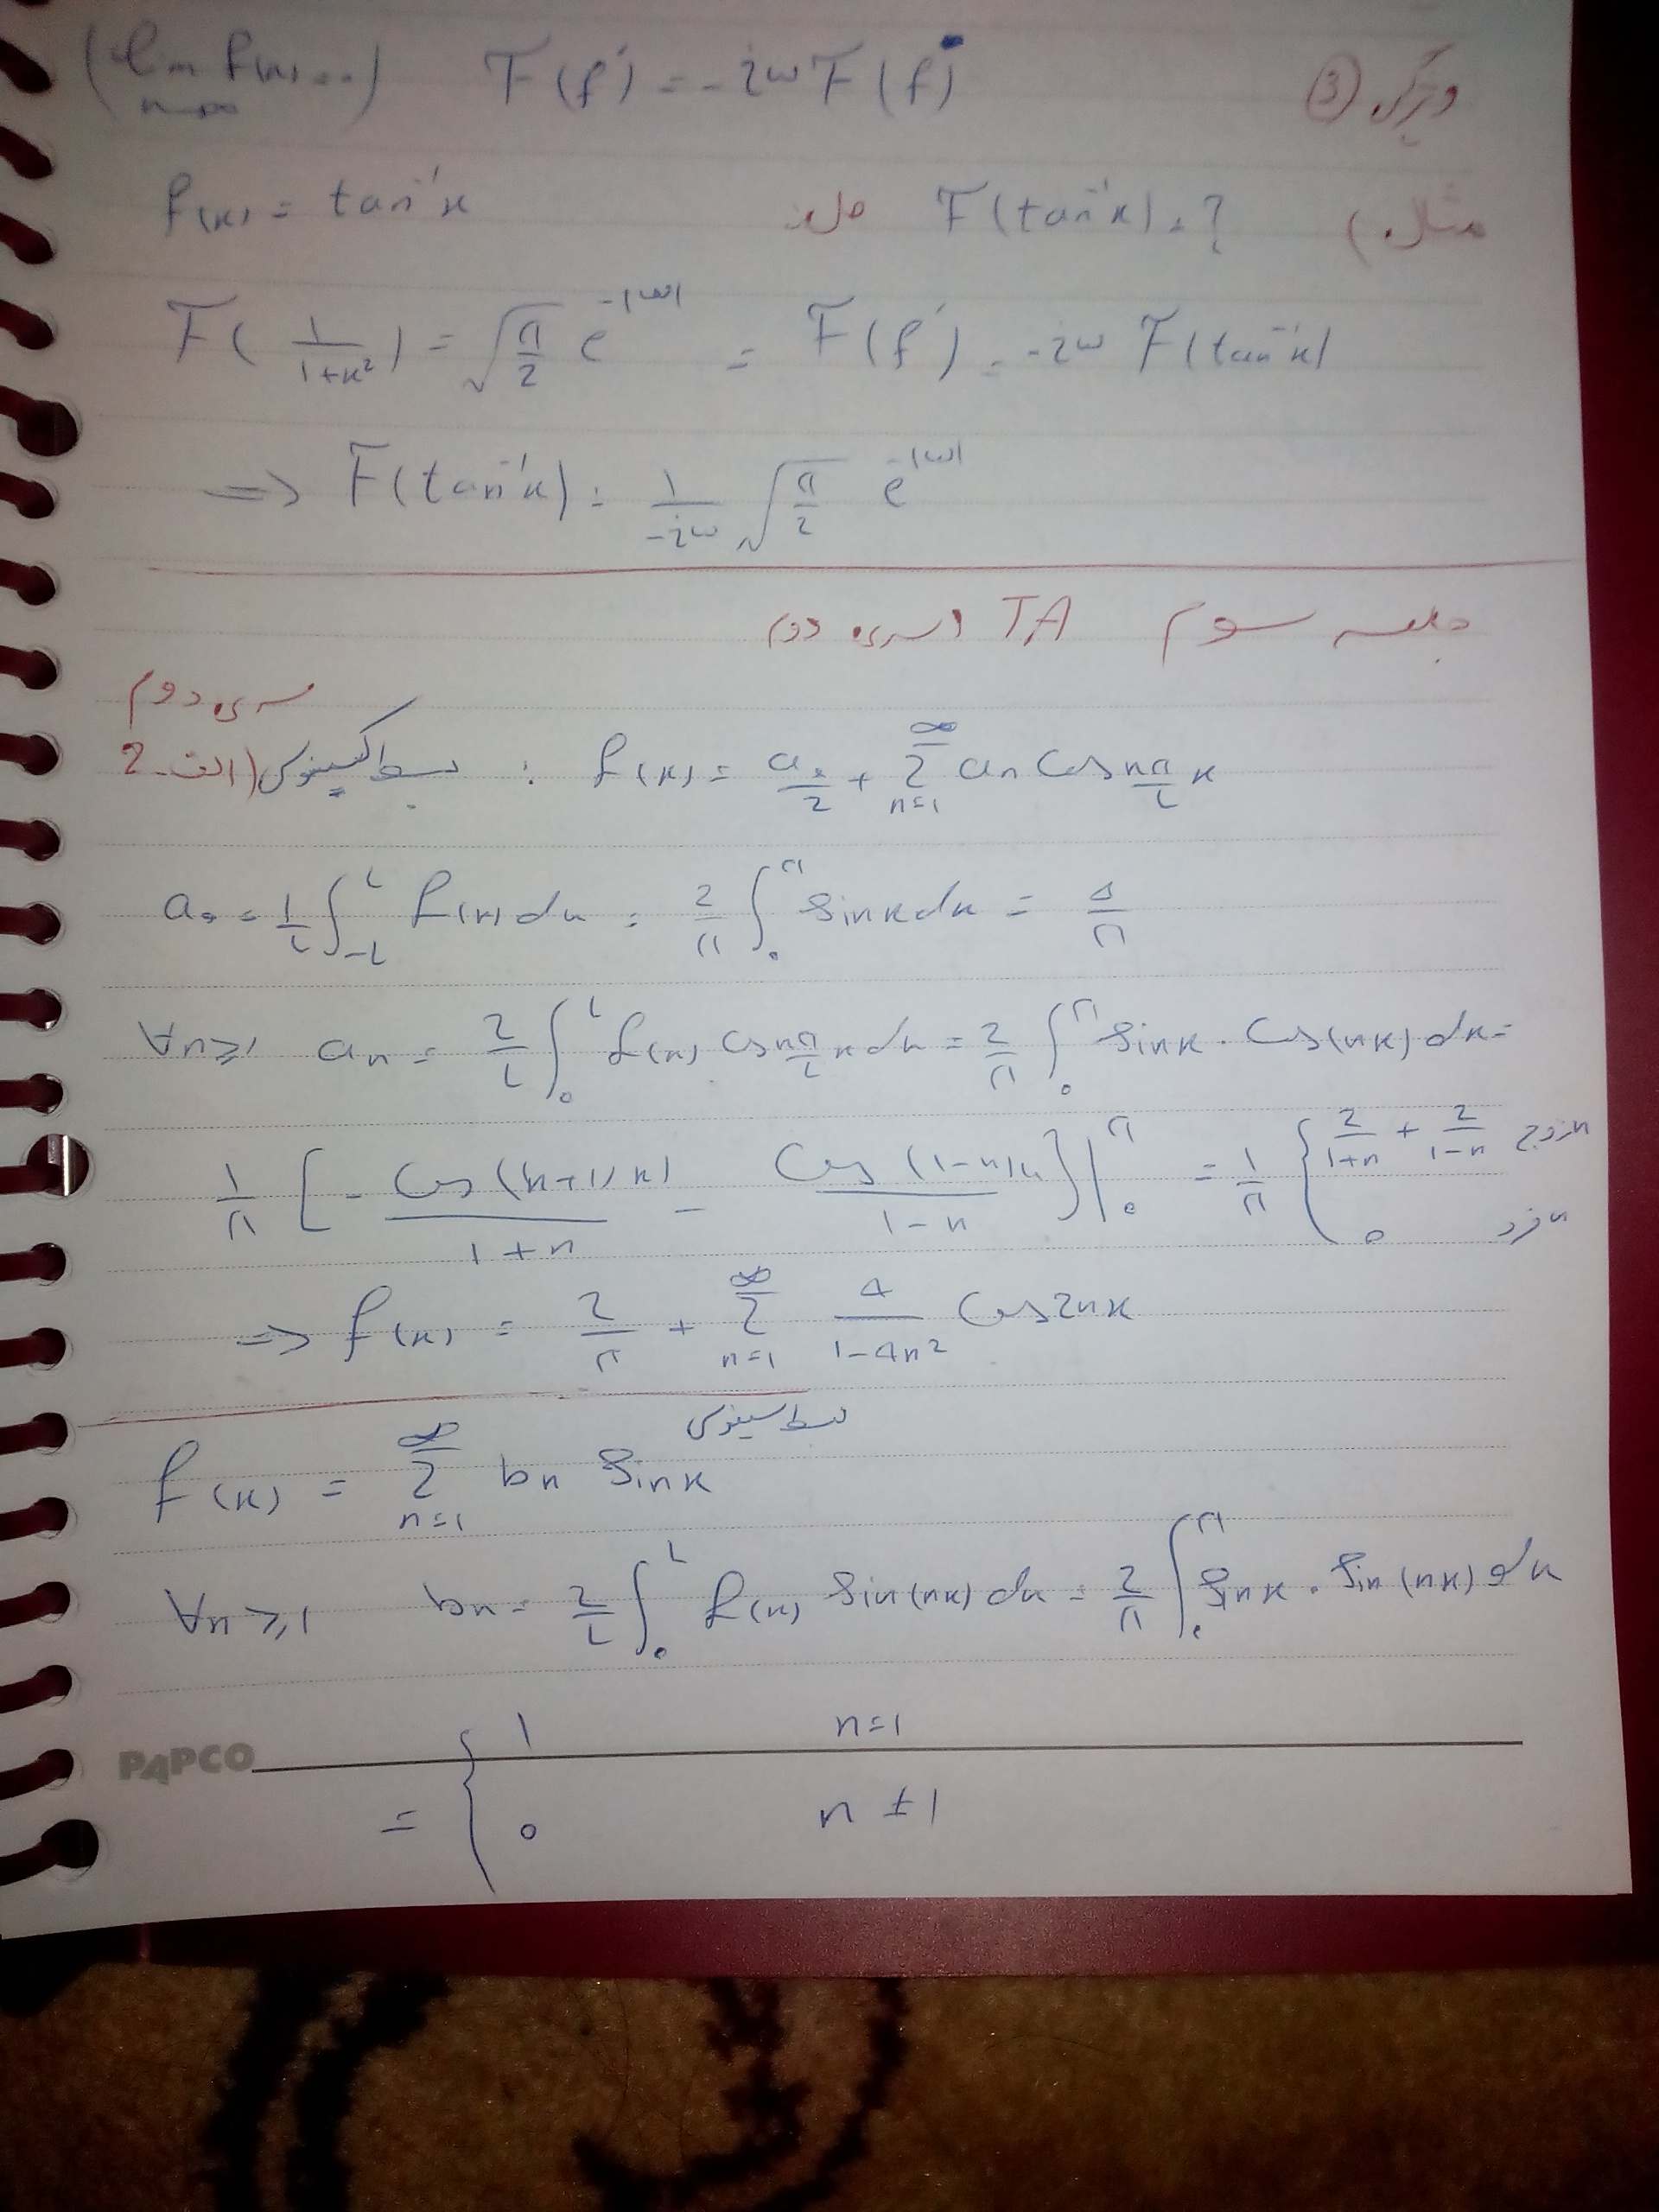 ویژگی ③ F(f') = -iω F(f) (lim f(x) = 0)
مثال) F(tan⁻¹x) = ? حل: f(x) = tan⁻¹x
F( 1/(1+x²) ) = √(π/2) e^(-|ω|) = F(f') = -iω F(tan⁻¹x)
=> F(tan⁻¹x) = 1/(-iω) √(π/2) e^(-|ω|)
جلسه سوم TA (سری دوم
سری دوم
2 - الف) بسط کسینوسی : f(x) = a₀/2 + Σ_{n=1}^{∞} aₙ Cos nπ/L x
a₀ = 1/L ∫_{-L}^{L} f(x) dx = 2/π ∫_0^π Sin x dx = 4/π
∀n≥1 aₙ = 2/L ∫_0^L f(x) Cos nπ/L x dx = 2/π ∫_0^π Sin x . Cos(nx) dx =
1/π [ - Cos(n+1)x)/(1+n) - Cos(1-n)x/(1-n) ] |_0^π = 1/π { 2/(1+n) + 2/(1-n) n زوج
0 n فرد
=> f(x) = 2/π + Σ_{n=1}^{∞} 4/(1-4n²) Cos 2nx
بسط سینوسی
f(x) = Σ_{n=1}^{∞} bn Sin x
∀n≥1 bn = 2/L ∫_0^L f(x) Sin(nx) dx = 2/π ∫_0^π Sin x . Sin(nx) dx
= { 1 n=1
0 n≠1
PAPCO